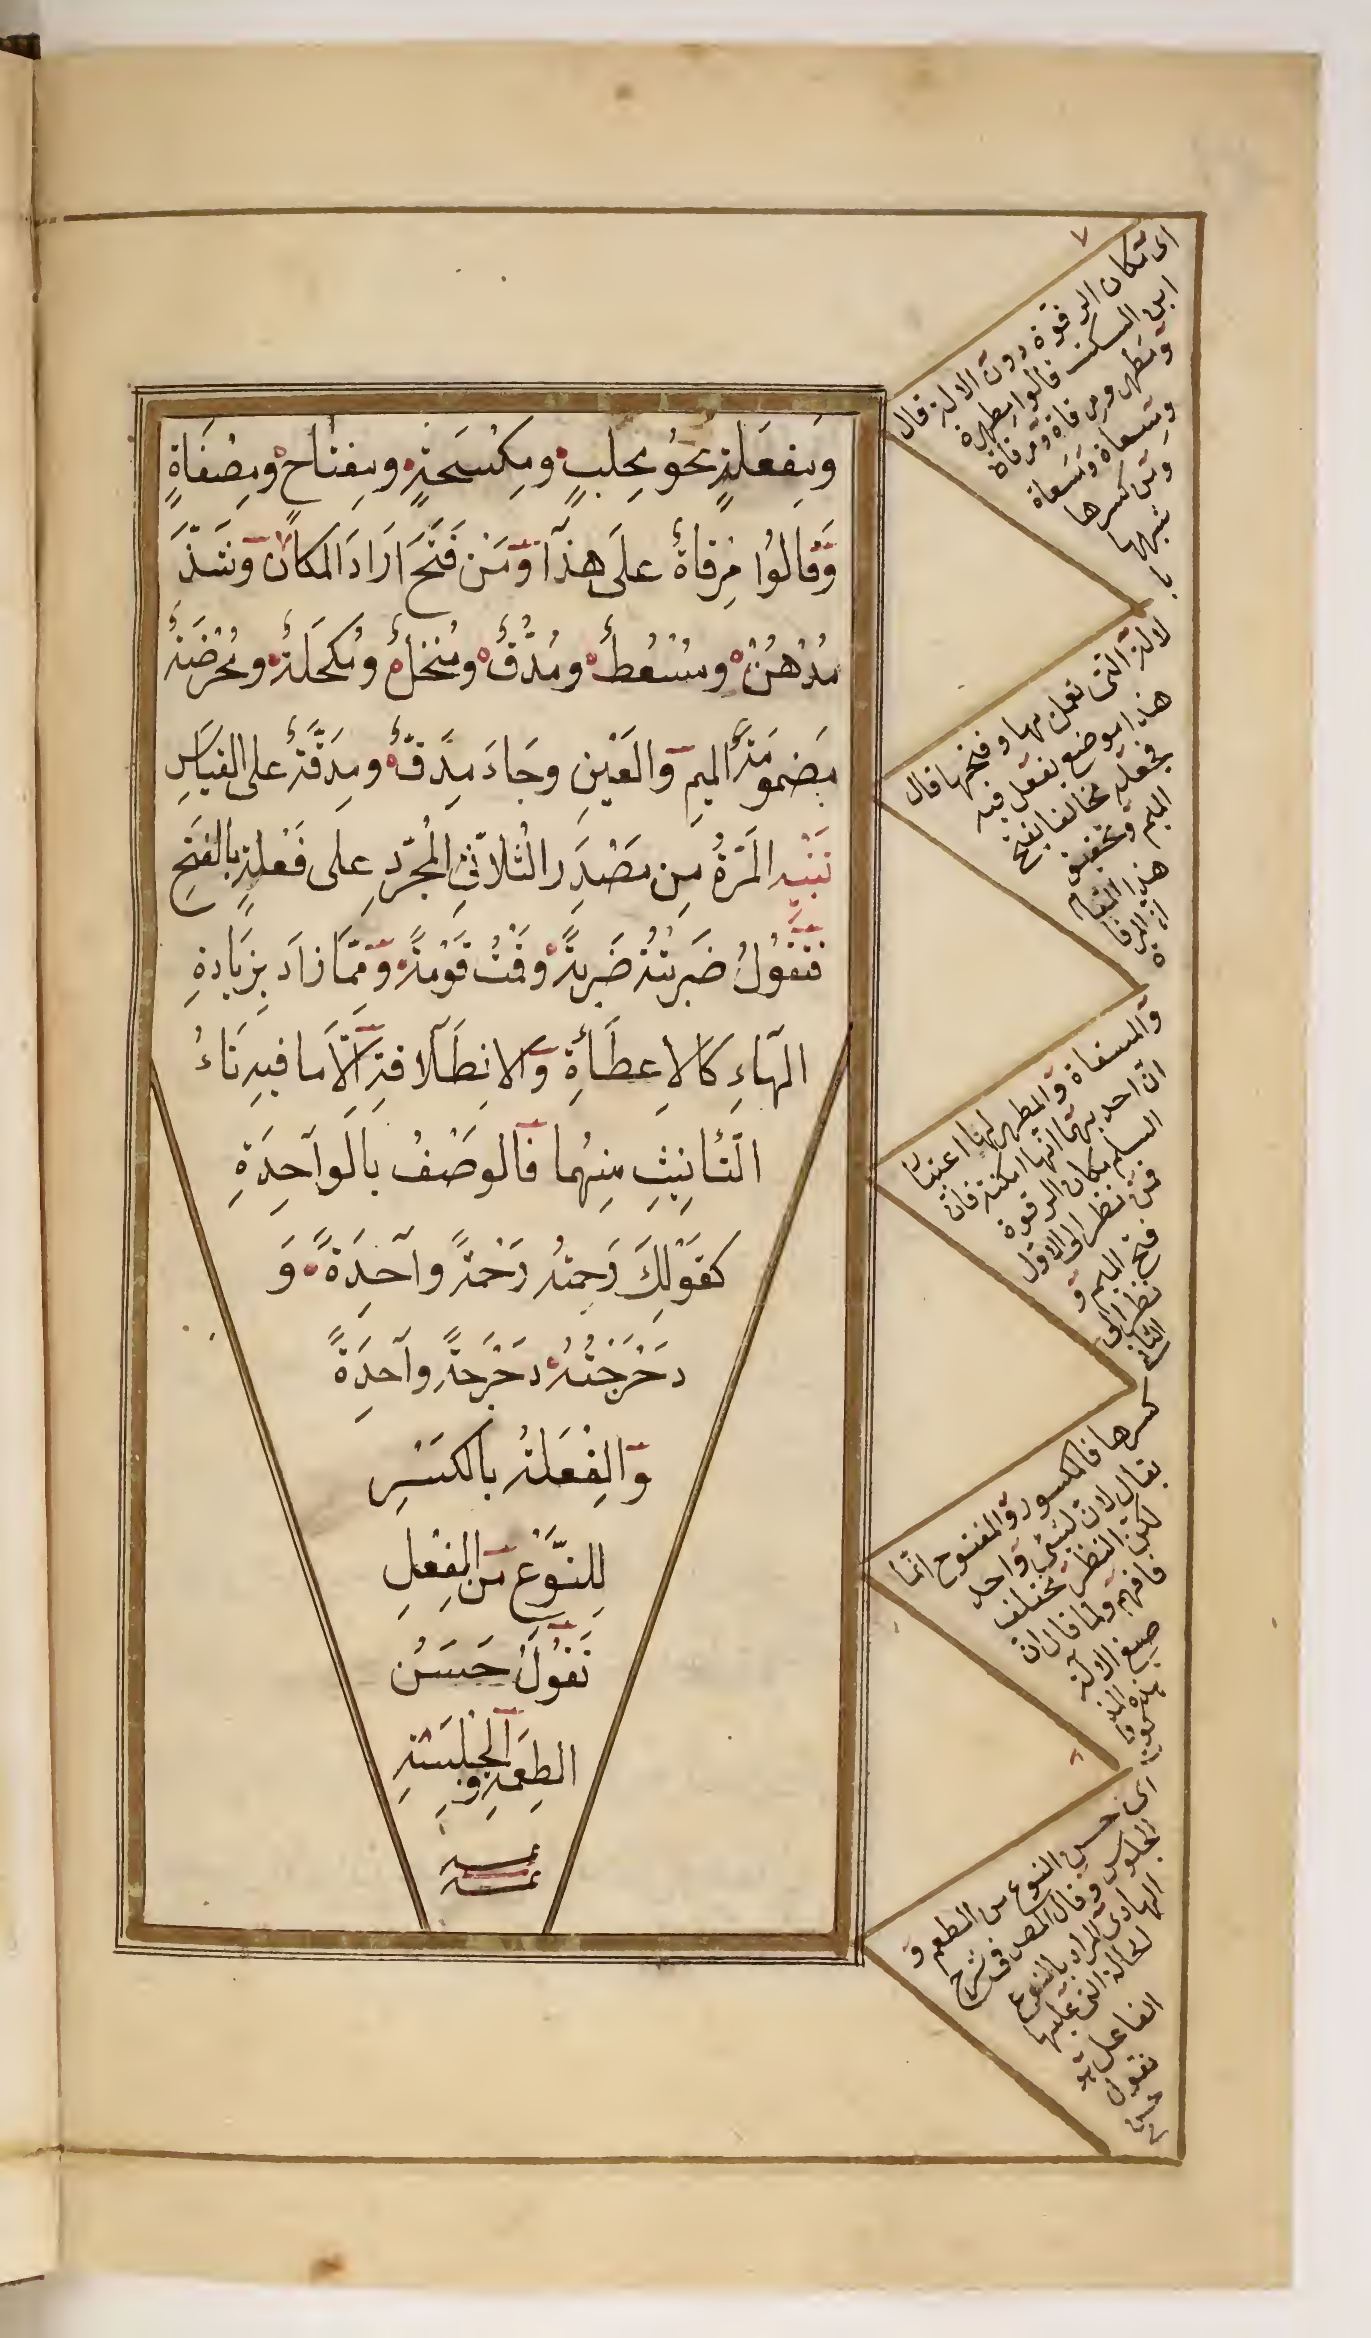 وَمِفعَلَةٍ نَحْوُ مِحلَبٍ ومِكْسَحَةٍ ومِفتاحٍ ومِصْفَاةٍ
وَقَالُوا مِرْقاةٌ علَى هذا ومَنْ فَتَحَ ارَادَ المَكانَ وَشَذَّ
مُدْهُنٌ ومُسْعُطٌ ومُدُقٌّ ومُنخلٌ ومُكحلَةٌ ومُحْرُضَةٌ
مَضمومَةَ الميمِ والعَيْنِ وجَاءَ مِدَقٌّ ومِدَقَّةٌ على القِيَاسِ
تَنْبِيه المَرَّةُ مِن مَصْدَرِ الثُلاثِيِّ المُجَرّدِ على فَعْلةٍ بالفَتحِ
فَتَقُولُ ضَرَبْتُهُ ضَرْبةً وقُمْتُ قَوْمَةً ومِمّا زادَ بِزِيَادةِ
الهَاءِ كَالاِعطَأةِ والانِطِلاقةِ اِلّا مَا فيهِ تَاءُ
التَأنِيثِ مِنهُما فَالوَصْفُ بالواحِدَةِ
كقَوْلِكَ رَحِمتُهُ رَحْمةً واحِدَةً وَ
دَحْرَجْتُهُ دَحْرَجةً واحِدَةً
وَالفِعْلَةُ بالكَسْرِ
لِلنَّوْعِ مِنَ الفِعْلِ
تَقُولُ حَسَنُ
الطِعمَةِ والجِلْسَةِ
٧
اى مكان الرقوة دون الالة قال
ابن السكيت قالوا مطهرة
ومطهرة ومرقاة ومرقاة
ومسعاة ومسعاة
ومن كسرها
شبهها
با
لالة التى تعمل بها وفتحها قال
هذا موضع يفعل فيه
فجعله مخالفا بفتح
الميم وتحقيق
هذا المقام
ان المرقا
ة
والمسقاة والمطهر لها اعتبارا
ن احديهما انها امكنة فان
السلم مكان الرقوة
فمن نظر الى الاول
فتح الميم و
نظر الى
الثانى
كسرها فالمكسور والمفتوح انما
يقال لان لشئ واحد
لكن النظر مختلف
فافهم ولما قال ان
صيغ الالة
هذه المذ
كورة
٨
اى حسن النوع من الطعم و
الجلوس وقال المصـ فى شرح
الهادى المراد بالنوع
الحالة التى عليها
الفاعل
تقول هو
حسن